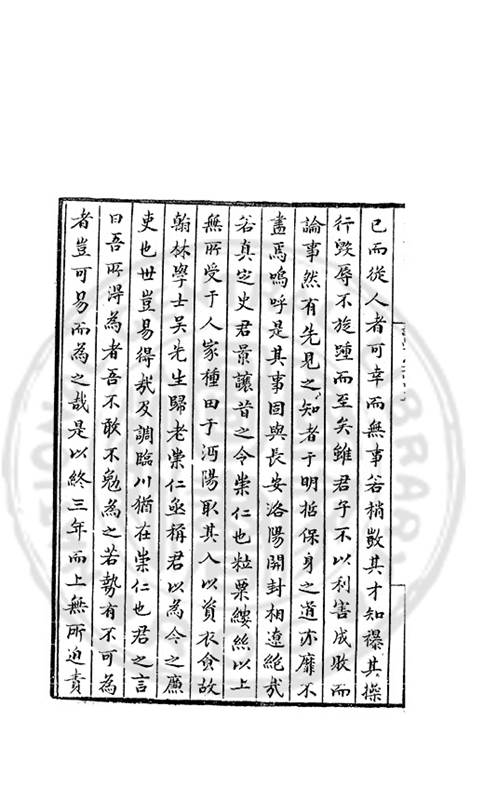 己而從人者可幸而無事若稍斂其才知襮其操
行毀辱不旋踵而至矣雖君子不以利害成敗而
論事然有先見之知者于明哲保身之道亦靡不
盡焉嗚呼是其事固與長安洛陽開封相遼絕哉
若真定史君景讓昔之令崇仁也粒粟縷絲以上
無所受于人家種田于沔陽取其入以資衣食故
翰林學士吳先生歸老崇仁亟稱君以為今之廉
吏也世豈易得哉及調臨川猶在崇仁也君之言
曰吾所得為者吾不敢不勉為之若勢有不可為
者豈可易而為之哉是以終三年而上無所迫責